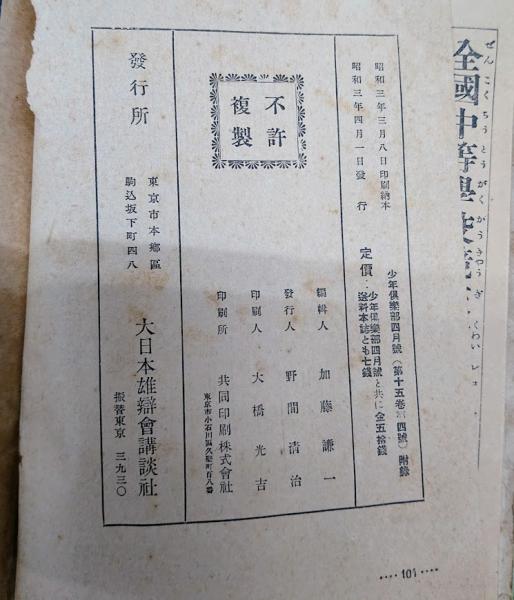 全國中等學
ぜんこくちうとうがくかうきゅうぎ
昭和三年三月八日印刷納本
昭和三年四月一日發行
少年俱樂部四月號(第十五卷第四號)附錄
定價・少年俱樂部四月號と共に金五拾錢
送料本誌とも七錢
不許
複製
編輯人 加藤謙一
發行人 野間清治
印刷人 大橋光吉
印刷所 共同印刷株式會社
東京市小石川區久堅町百八番
發行所
東京市本鄉區
駒込坂下町四八
大日本雄辯會講談社
振替東京 三九三〇
····101····